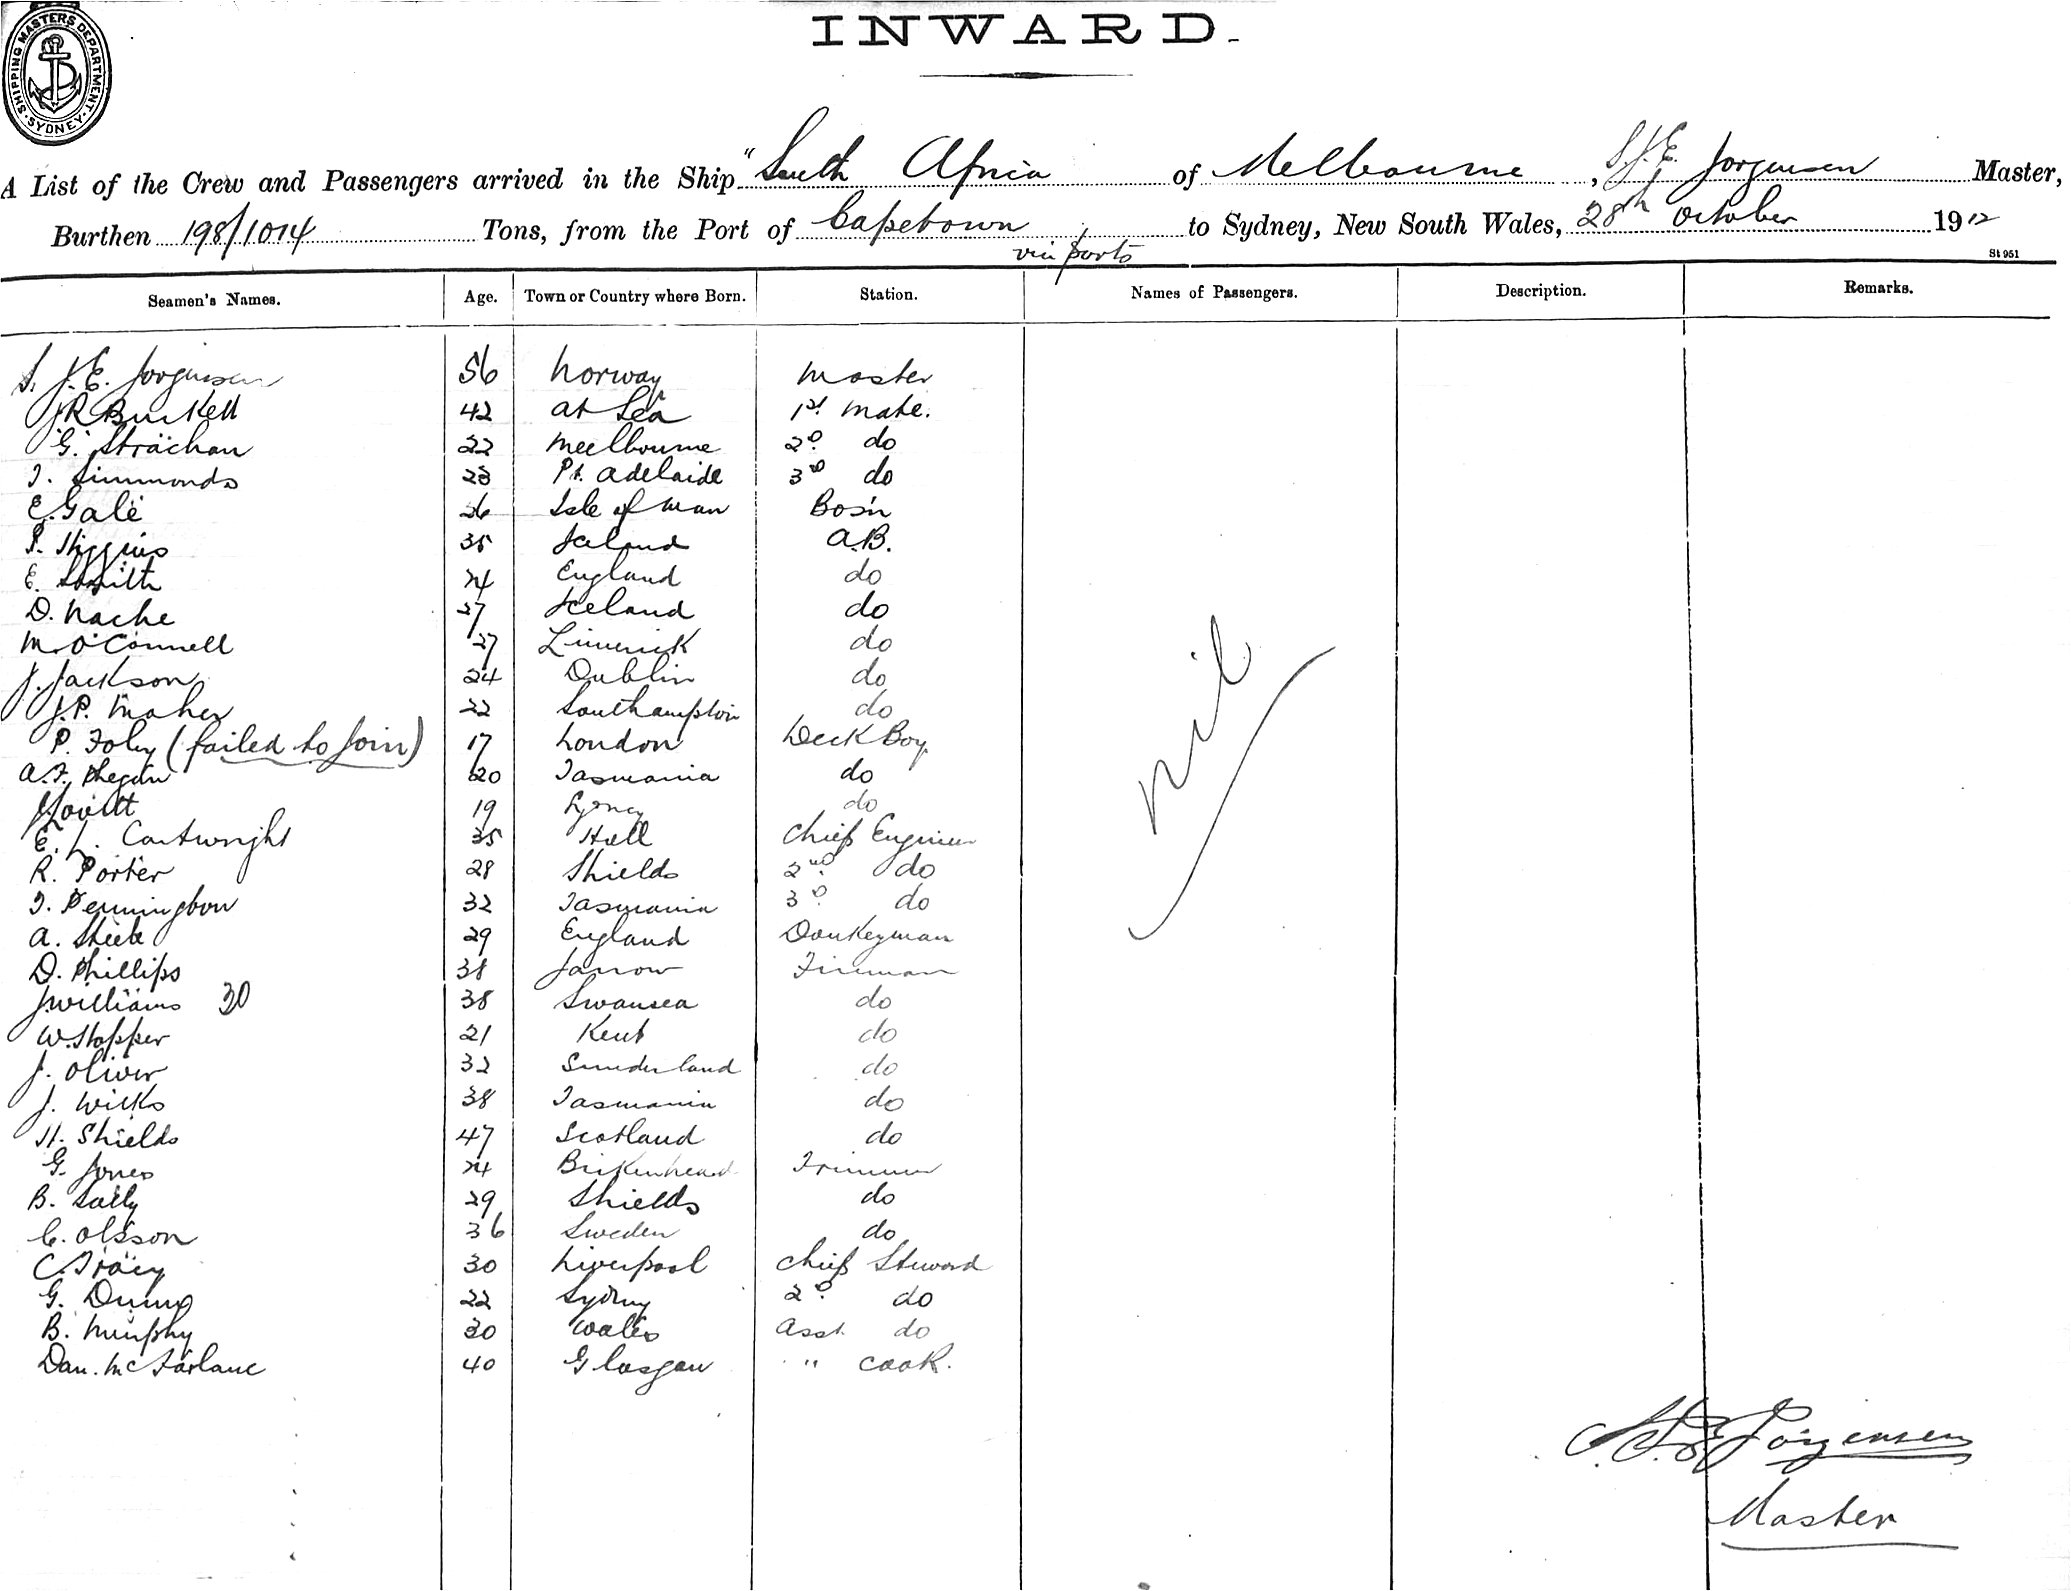 SHIPPING MASTERS DEPARTMENT. SYDNEY.
INWARD.
A List of the Crew and Passengers arrived in the Ship "South Africa of Melbourne, S.J.E. Jorgensen Master,
Burthen 198/1014 Tons, from the Port of Capetown to Sydney, New South Wales, 28th October 1912
via ports
St 951
Seamen's Names. Age. Town or Country where Born. Station. Names of Passengers. Description. Remarks.
S. J. E. Jorgensen 56 Norway Master
J R Burkett 42 at Sea 1st mate.
G. Strachan 22 Meelbourne 2D. do
T. Simmonds 23 Pt. Adelaide 3rd do
E. Gale 26 Isle of Man Bos'n
P. Higgins 35 Iceland A.B.
E. Smith 24 England do
D. Nache 27 Iceland do
M. O'Connell 27 Limerick do
J. Jackson 24 Dublin do
J. P. Maher 22 Southampton do
P. Foley (failed to join) 17 London Deck Boy.
A. F. Phegan 20 Tasmania do
J Lovitt 19 do
E. L. Cartwright 35 Hull Chief Engineer
R. Porter 28 Shields 2nd. do
T. Pennington 32 Tasmania 3D. do
A. Steele 29 England Donkeyman
D. Phillips 38 Jarrow Fireman
J. Williams 30 38 Swansea do
W. Hopper 21 Kent do
J. Oliver 32 Sunderland do
J. Wilks 38 Tasmania do
H. Shields 47 Scotland do
G. Jones 24 Birkenhead Trimmer
B. Sally 29 Shields do
C. Olsson 36 Sweden do
C. Tracy 30 Liverpool Chief Steward
G. 22 Sydney 2D. do
B. Murphy 30 Wales Asst. do
Dan. McFarlane 40 Glasgow " cook.
nil
S. J. E. Jorgensen
Master